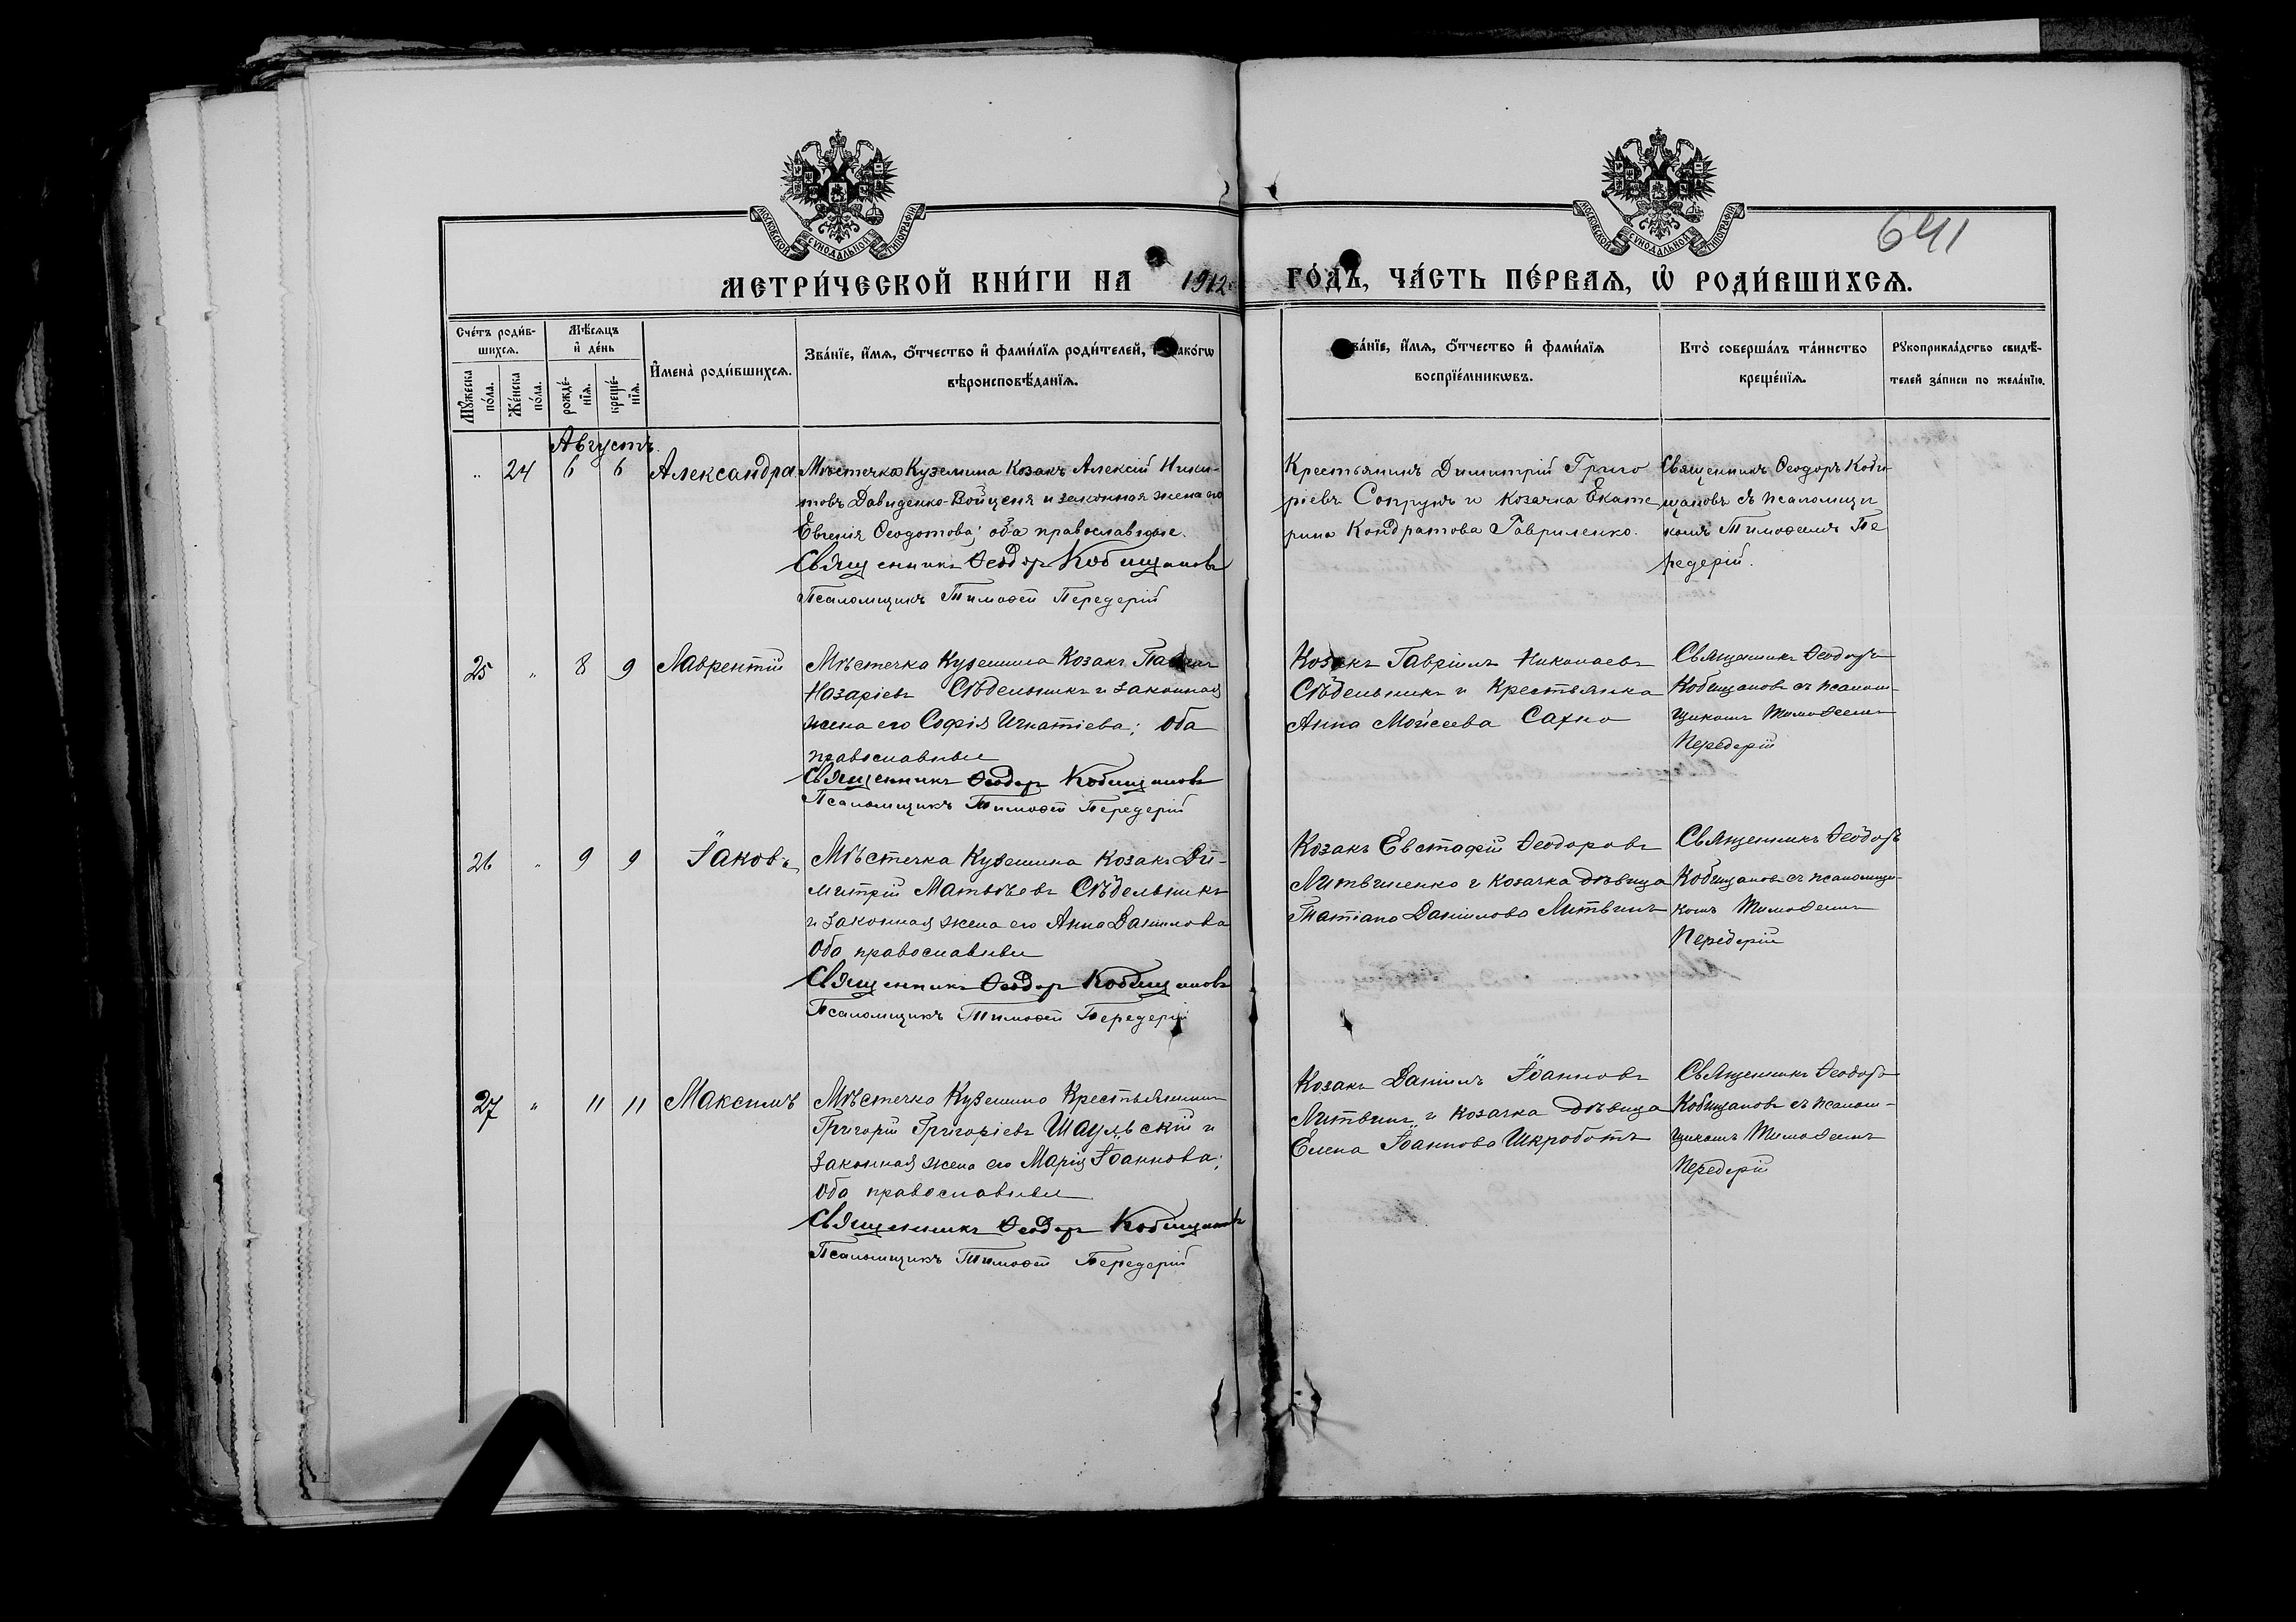 МОСКОВСКОЙ СУНОДАЛЬНОЙ ТИПОГРАФІИ
МОСКОВСКОЙ СУНОДАЛЬНОЙ ТИПОГРАФІИ
641
МЕТРИ́ЧЕСКОЙ КНИ́ГИ НА 1912 ГО́ДЪ, ЧА́СТЬ ПЕ́РВАѦ, Ѡ҆ РОДИ́ВШИХСѦ.
Сче́тъ роди́в-
шихсѧ.
Мꙋ́жеска по́ла.
Же́нска по́ла.
Мѣ́сѧцъ
и҆ де́нь
рожде́-
нїѧ.
креще́-
нїѧ.
И҆мена̀ роди́вшихсѧ.
Зва́нїе, и҆́мѧ, ѻ҆́тчество и҆ фами́лїѧ роди́телей, и҆ како́гѡ
вѣроисповѣ́данїѧ.
Зва́нїе, и҆́мѧ, ѻ҆́тчество и҆ фами́лїѧ
воспрїе́мникѡвъ.
Кто̀ соверша́лъ та́инство
креще́нїѧ.
Рꙋкоприкла́дство свидѣ́-
телей за́писи по жела́нїю.
Августъ
" 24 6 6 Александра
Мѣстечка Куземина Козакъ Алексій Ники-
товъ Давиденко-Войценя и законная жена его
Евгенія Ѳеодотова; оба православные.
Священникъ Ѳеодоръ Кобищановъ
Псаломщикъ Тимоѳей Передерій
Крестьянинъ Димитрій Григо
ріевъ Сопрунъ и козачка Екате
рина Кондратова Гавриленко.
Священникъ Ѳеодоръ Коби-
щановъ съ псаломщи
комъ Тимоѳеемъ Пе
редерій.
25 " 8 9 Лаврентій
Мѣстечка Куземина Козакъ
Назаріевъ Сѣдельникъ и законная
жена его Софія Игнатіева; оба
православные
Священникъ Ѳеодоръ Кобищановъ
Псаломщикъ Тимоѳей Передерій
Козакъ Гавріилъ Николаевъ
Сѣдельникъ и Крестьянка
Анна Мойсеева Сахно
Священникъ Ѳеодоръ
Кобищановъ съ псалом-
щикомъ Тимоѳеемъ
Передерій
26 " 9 9 Іаковъ
Мѣстечка Куземина Козакъ Ди-
митрій Матвѣевъ Сѣдельникъ
и законная жена его Анна Даніилова
Оба православные
Священникъ Ѳеодоръ Кобищановъ
Псаломщикъ Тимоѳей Передерій
Козакъ Евстафій Ѳеодоровъ
Литвиненко и козачка дѣвица
Татіана Даніилова Литвинъ
Священникъ Ѳеодоръ
Кобищановъ съ псаломщи-
комъ Тимоѳеемъ
Передерій
27 " 11 11 Максимъ
Мѣстечка Куземина Крестьянинъ
Григорій Григоріевъ Шаулвскій и
законная жена его Марія Іоаннова;
Оба православные
Священникъ Ѳеодоръ Кобищановъ
Псаломщикъ Тимоѳей Передерій
Козакъ Даніилъ Іоанновъ
Литвинъ и козачка дѣвица
Елена Іоаннова Шкроботъ
Священникъ Ѳеодоръ
Кобищановъ съ псалом-
щикомъ Тимоѳеемъ
Передерій